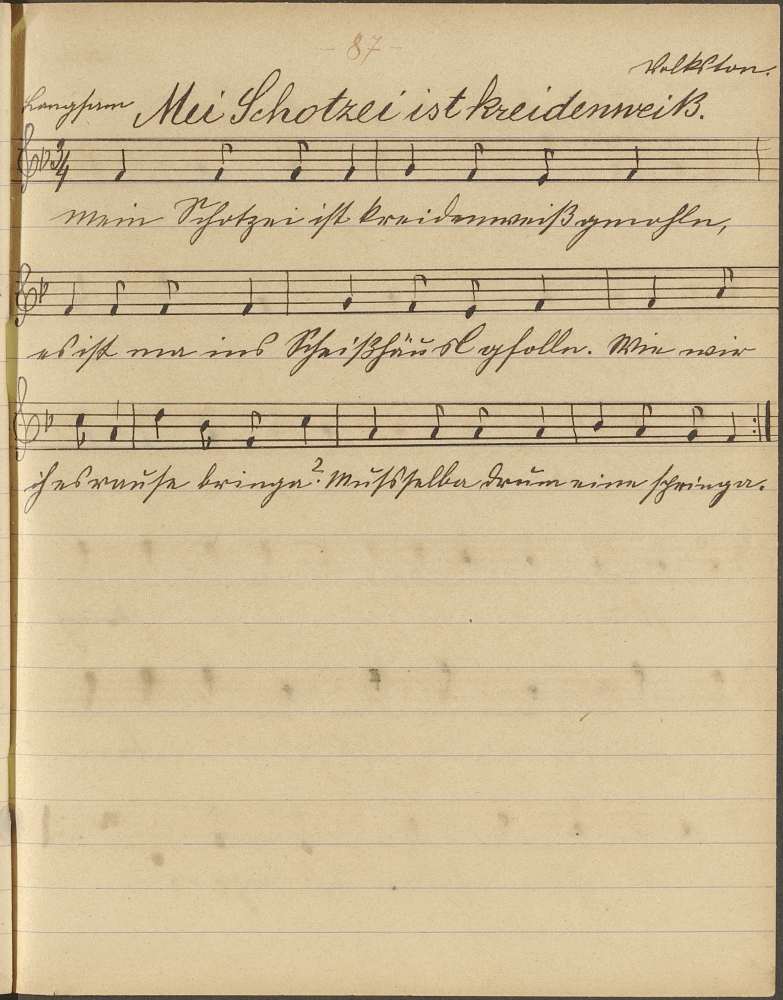 - 87 -
Volkston.
Langsam Mei Schotzei ist kreidenweiß.
3/4
Mein Schotzei ist kreidenweiß gmohln,
es ist ma ins Scheißhäusl gfolln. Wie wir
ich es rause bringa? Muss selba drum eine springa.